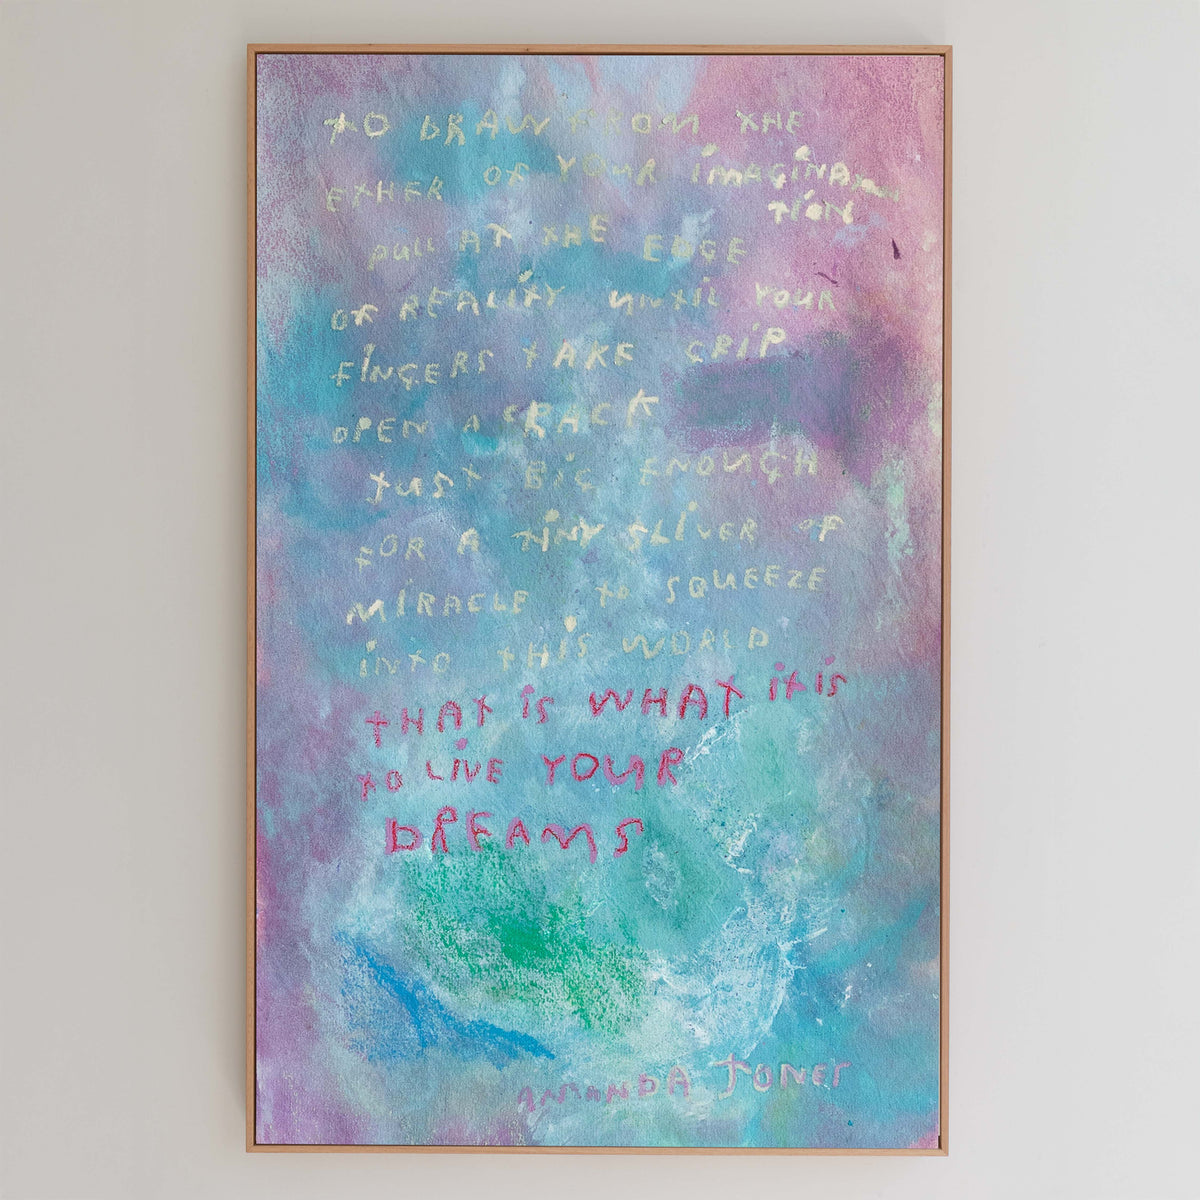 TO DRAW FROM THE
ETHER OF YOUR IMAGINA
TION
PULL AT THE EDGE
OF REALITY UNTIL YOUR
FINGERS TAKE GRIP
OPEN A CRACK
JUST BIG ENOUGH
FOR A TINY SLIVER OF
MIRACLE TO SQUEEZE
INTO THIS WORLD
THAT IS WHAT IT IS
TO LIVE YOUR
DREAMS
AMANDA JONES